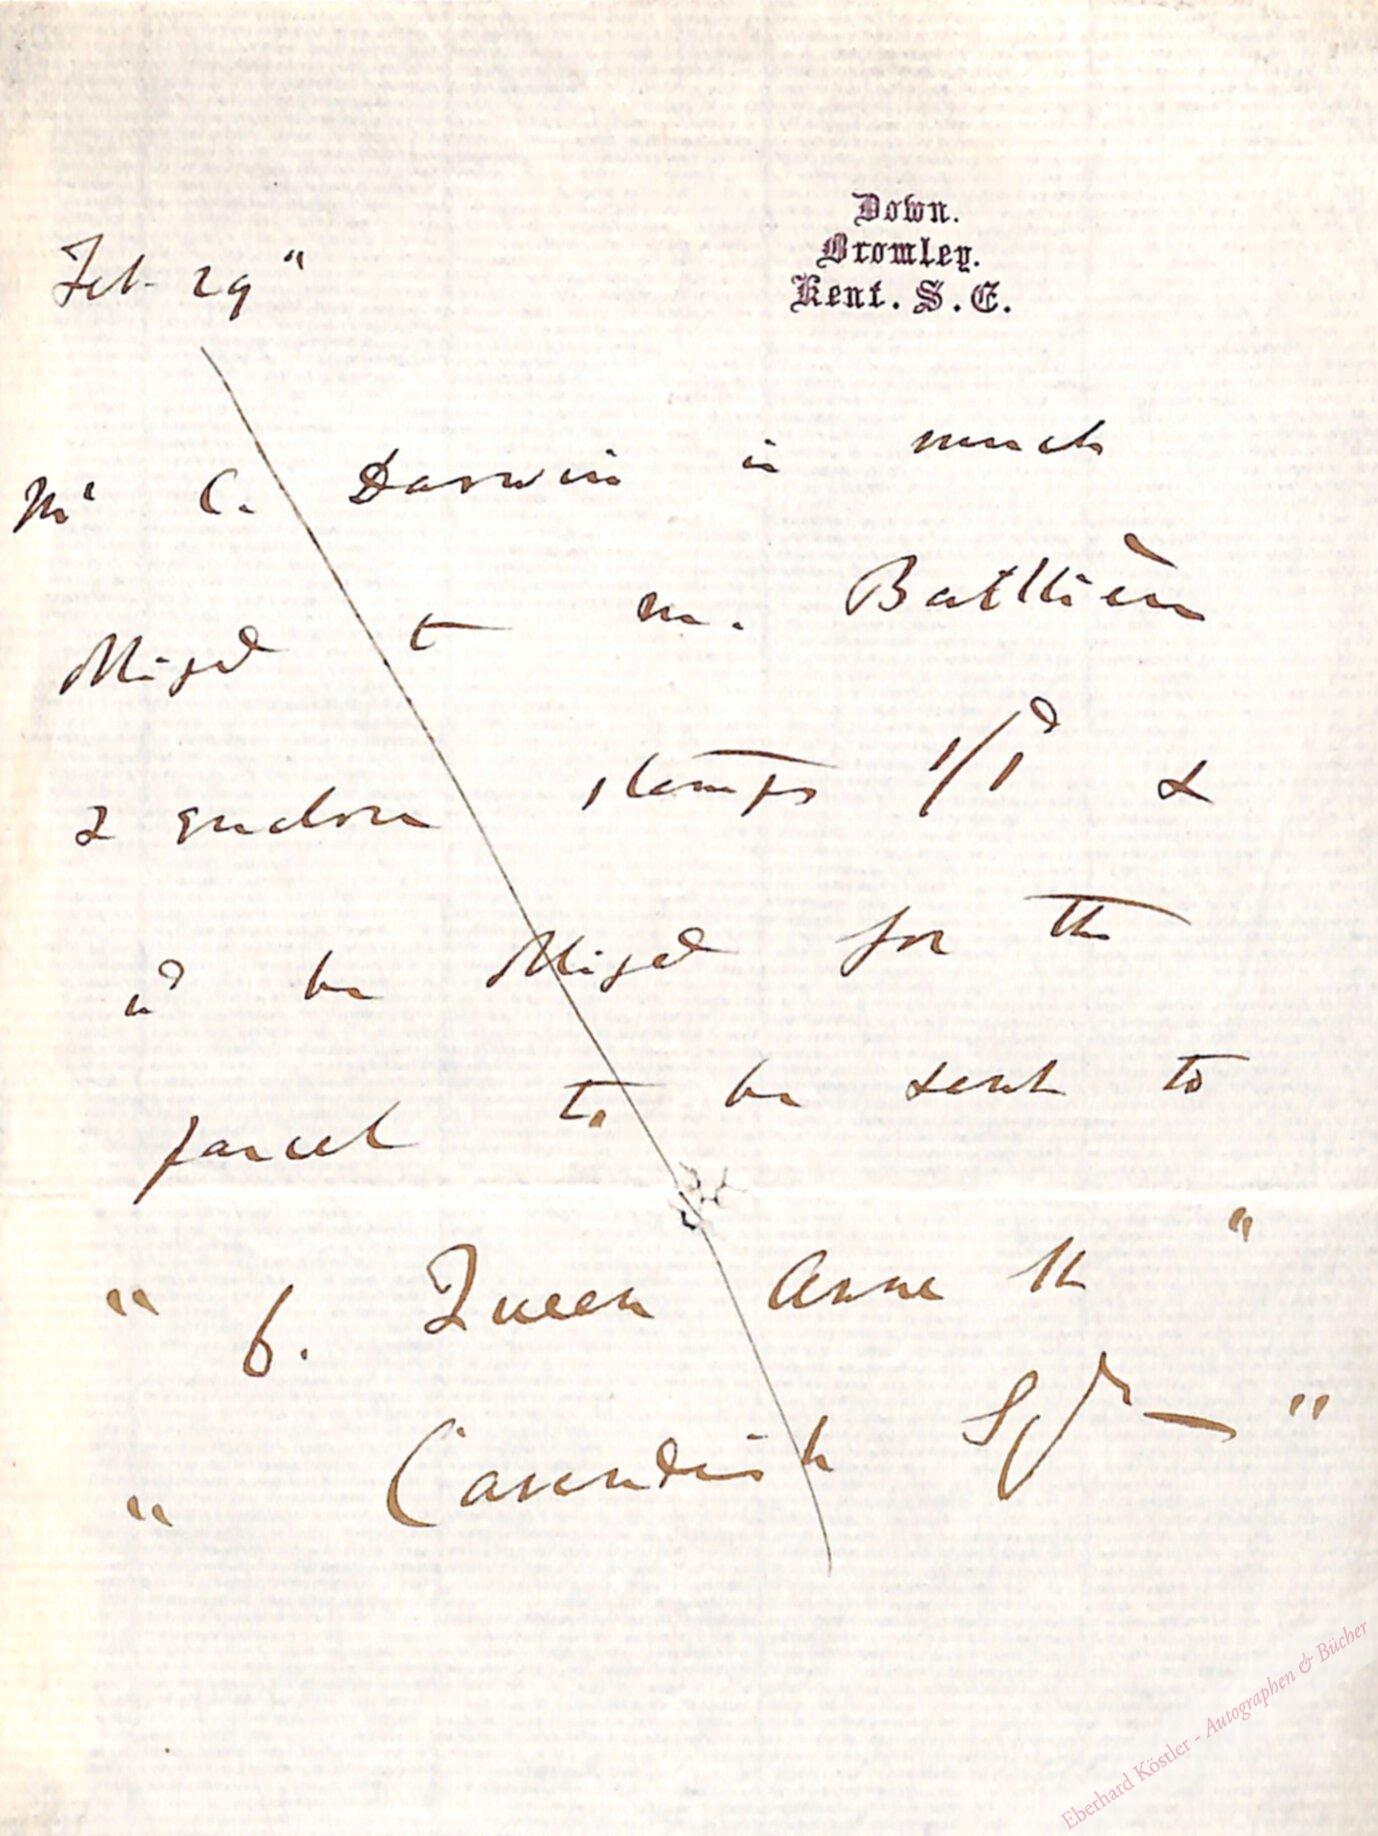 Down.
Bromley.
Kent. S.E.
Feb. 29th
Mr C. Darwin is much
obliged to M. Baillière
& encloses stamps 1/1d &
wd be obliged for the
parcel to be sent to
" 6. Queen Anne St "
" Cavendish Sqr — "
Eberhard Köstler - Autographen & Bücher